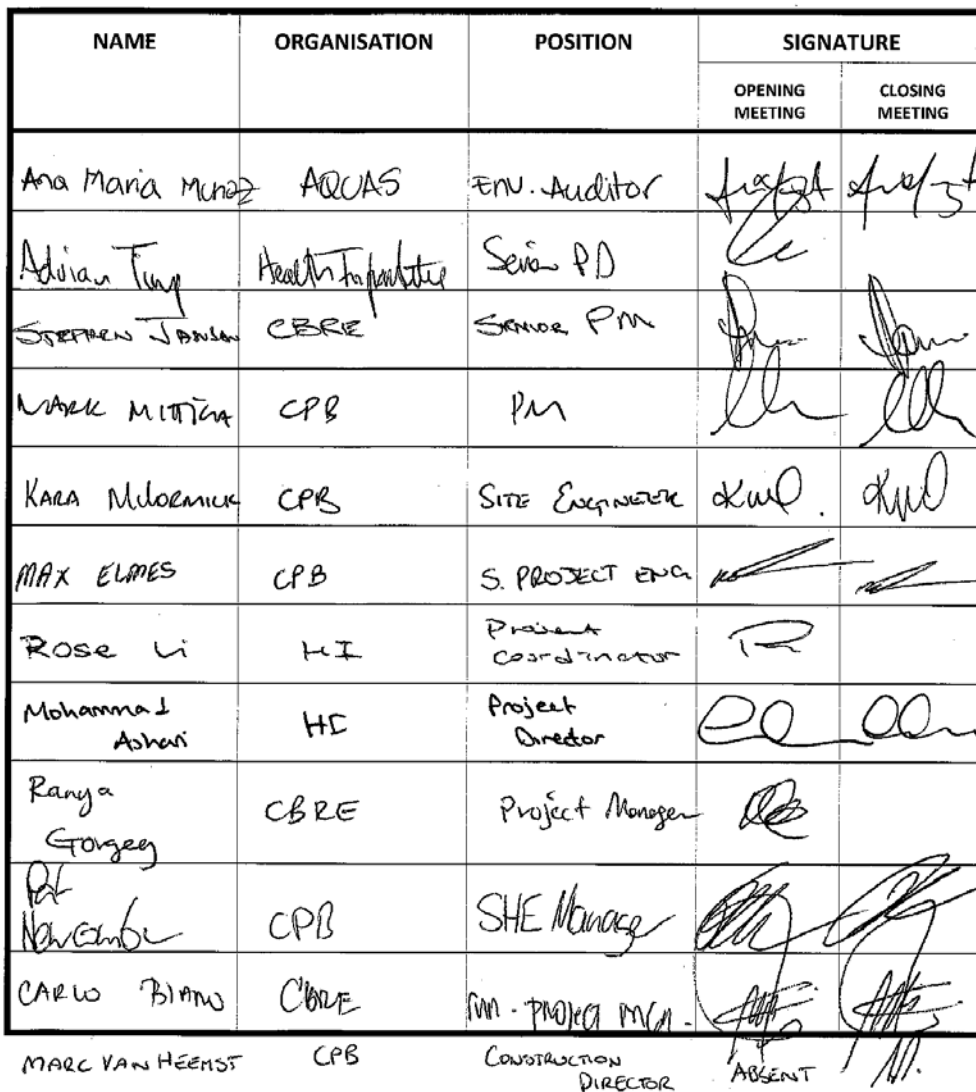 NAME ORGANISATION POSITION SIGNATURE
OPENING MEETING CLOSING MEETING
Ana Maria Munoz AQUAS ENV. Auditor
Adrian Health Senior PD
STEPHEN CBRE SENIOR PM
MARK CPB PM
KARA McCORMICK CPB SITE ENGINEER
MAX ELMES CPB S. PROJECT ENG
Rose Li HI Project
Coordinator
Mohammad HI Project
Ashari Director
Ranya CBRE Project Manager
Gorgees
CPB SHE Manager
CARLO CBRE PROJECT
MARC VAN HEEMST CPB CONSTRUCTION
DIRECTOR ABSENT